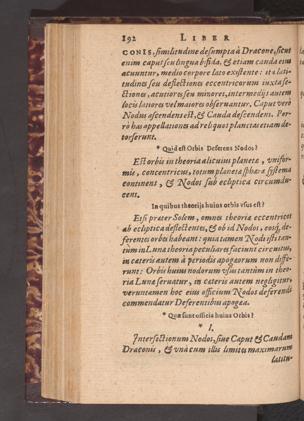 192 LIBER
CONIS, similitudine desumpta à Dracone, sicut
enim caput seu lingua bifida, & etiam cauda eius
acuuntur, medio corpore lato existente: ita lati-
tudines seu deflectiones eccentricorum iuxta se-
ctiones, acutiores seu minores, intermedijs autem
locis latiores vel maiores obseruantur. Caput verò
Nodus ascendens est, & Cauda descendens. Por-
rò has appellationes ad reliquos planetas etiam de-
torserunt.
* Quid est Orbis Deferens Nodos?
Est orbis in theoria alicuius planetæ, vnifor-
mis, concentricus, totum planetæ sphæræ systema
continens, & Nodos sub ecliptica circundu-
cens.
In quibus theorijs huius orbis vsus est?
Etsi præter Solem, omnes theoriæ eccentricos
ab ecliptica deflectentes, & ob id Nodos, eosq; de-
ferentes orbes habeant: quia tamen Nodi isti tan-
tùm in Luna theoria peculiares faciunt circuitus,
in cæteris autem à periodis apogæorum non diffe-
runt: Orbis huius nodorum vsus tantùm in theo-
ria Lunæ seruatur, in cæteris autem negligitur,
veruntamen hoc eius officium Nodos deferendi
commendatur Deferentibus apogæa.
* Quæ sunt officia huius Orbis?
* I.
Intersectionum Nodos, siue Caput & Caudam
Draconis, & vnà cum illis limites maximarum
latitu-